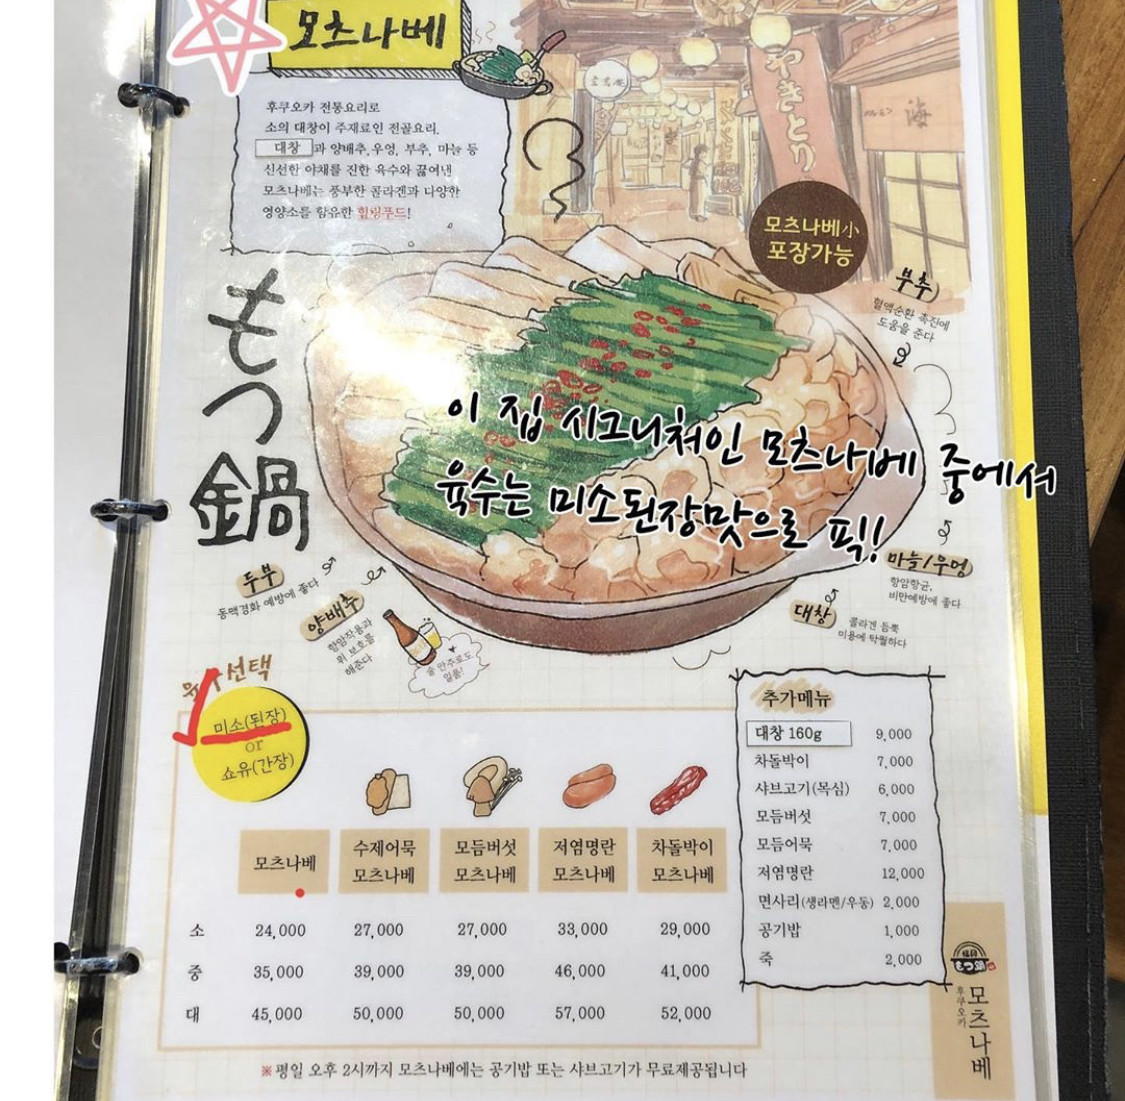 모츠나베
후쿠오카 전통요리로
소의 대창이 주재료인 전골요리.
대창 과 양배추, 우엉, 부추, 마늘 등
신선한 야채를 진한 육수와 끓여낸
모츠나베는 풍부한 콜라겐과 다양한
영양소를 함유한 힐링푸드!
やきとり
海
모츠나베小
포장가능
부추
혈액순환 촉진에
도움을 준다
もつ鍋
이 집 시그니처인 모츠나베 중에서
육수는 미소된장맛으로 픽!
두부
동맥경화 예방에 좋다
양배추
항암작용과
위 보호를
해준다
술 안주로도
일품!
마늘/우엉
항암항균,
비만예방에 좋다
대창
콜라겐 듬뿍
미용에 탁월하다
육수선택
미소(된장)
or
쇼유(간장)
모츠나베
수제어묵 모츠나베
모듬버섯 모츠나베
저염명란 모츠나베
차돌박이 모츠나베
소 24,000 27,000 27,000 33,000 29,000
중 35,000 39,000 39,000 46,000 41,000
대 45,000 50,000 50,000 57,000 52,000
추가메뉴
대창 160g 9,000
차돌박이 7,000
샤브고기(목심) 6,000
모듬버섯 7,000
모듬어묵 7,000
저염명란 12,000
면사리(생라멘/우동) 2,000
공기밥 1,000
죽 2,000
もつ鍋
후쿠오카
모츠나베
※ 평일 오후 2시까지 모츠나베에는 공기밥 또는 샤브고기가 무료제공됩니다